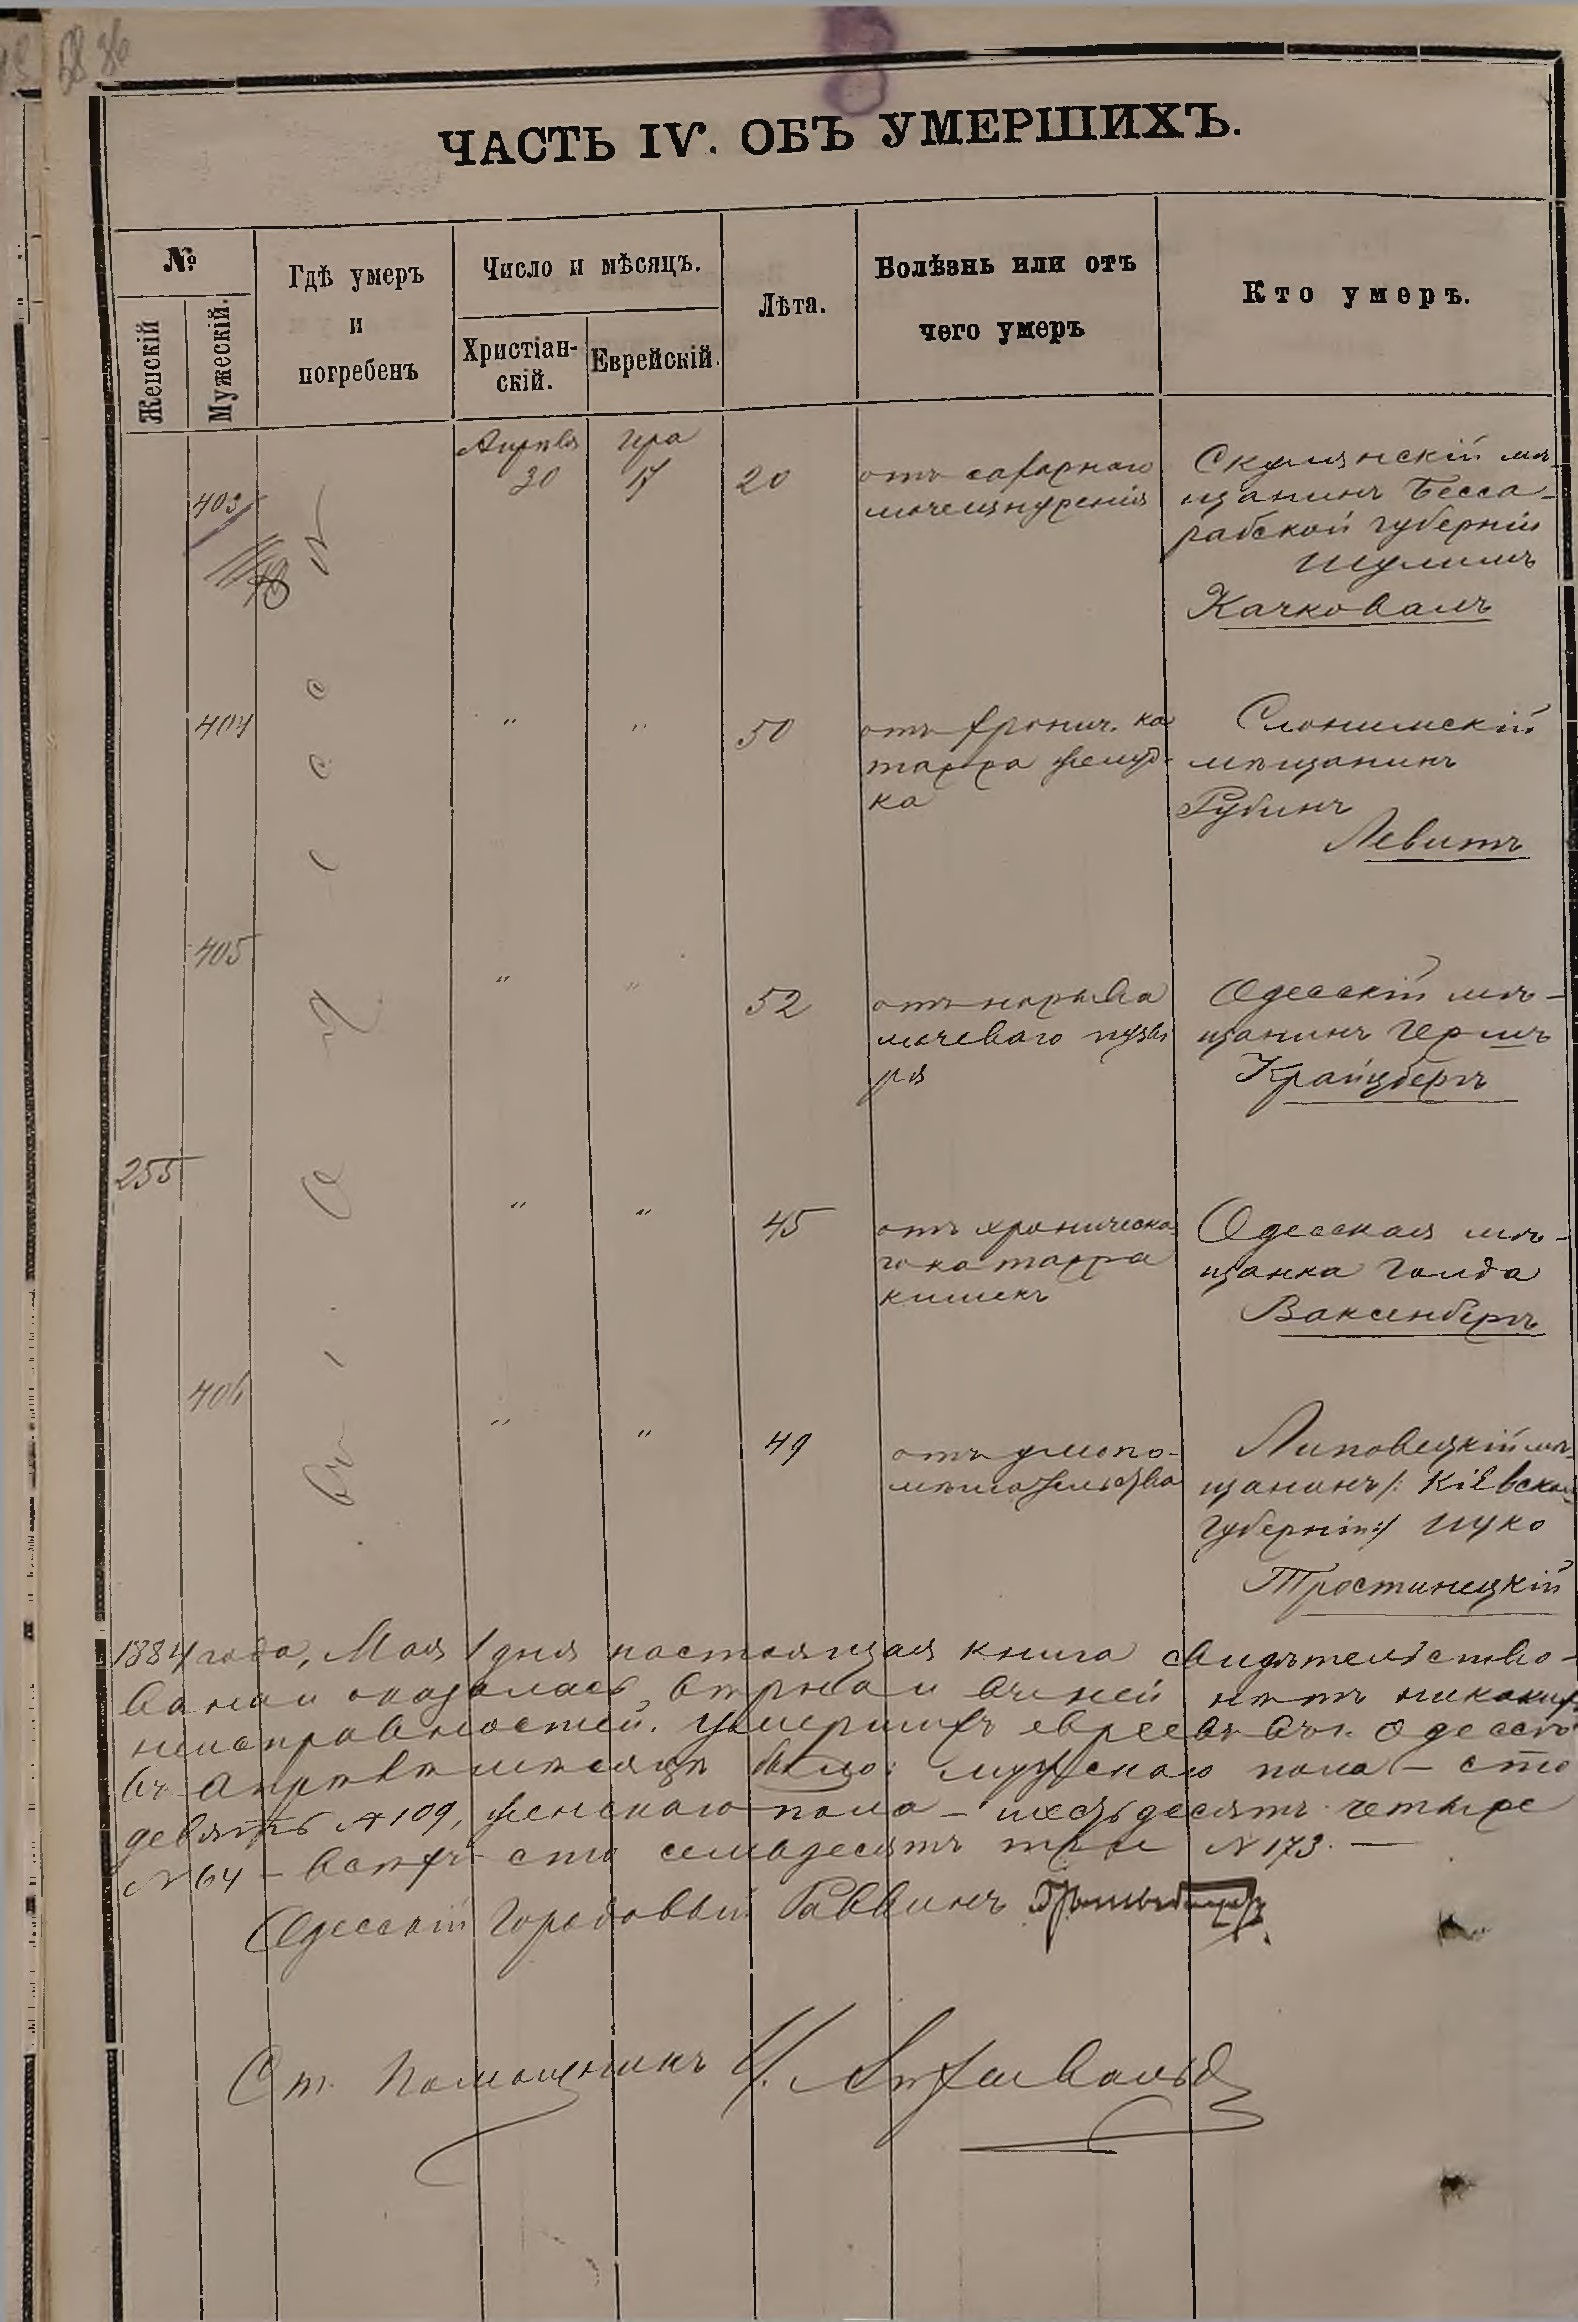 58 36
ЧАСТЬ IV. ОБЪ УМЕРШИХЪ.
№
Женскій
Мужескій.
Гдѣ умеръ
и
погребенъ
Число и мѣсяцъ.
Христіан-
скій.
Еврейскій.
Лѣта.
Болѣзнь или отъ
чего умеръ
Кто умеръ.
Въ г. Одессѣ
403
Апрѣля
30
Іера
17
20
отъ сахарнаго
мочеизнуренія
Скулянскій мѣ-
щанинъ Бесса-
рабской губерніи
Шулимъ
Качковалъ
404
"
"
50
отъ хронич. ка
тарра желуд-
ка
Слонимскій
мѣщанинъ
Рубинъ
Левитъ
405
"
"
52
отъ нарыва
мочеваго пузы
ря
Одесскій мѣ-
щанинъ Гершъ
Крайцбергъ
255
"
"
45
отъ хроническа-
го катарра
кишекъ
Одесская мѣ-
щанка Голда
Ваксенбергъ
406
"
"
49
отъ умопо-
мѣшательства
Липовецкій мѣ-
щанинъ /: Кіевской
губерніи :/ Ицко
Тростинецкій
1884 года, Мая 1 дня настоящая книга свидѣтельство-
вана и оказалась вѣрною и въ ней нѣтъ никакихъ
неисправностей. Умершихъ евреевъ въ г. Одессѣ
въ Апрѣлѣ мѣсяцѣ было: мужскаго пола – сто
девять № 109, женскаго пола – шестьдесятъ четыре
№ 64 – всѣхъ сто семьдесятъ три № 173. —
Одесскій Городовый Раввинъ
Ст. Помощникъ